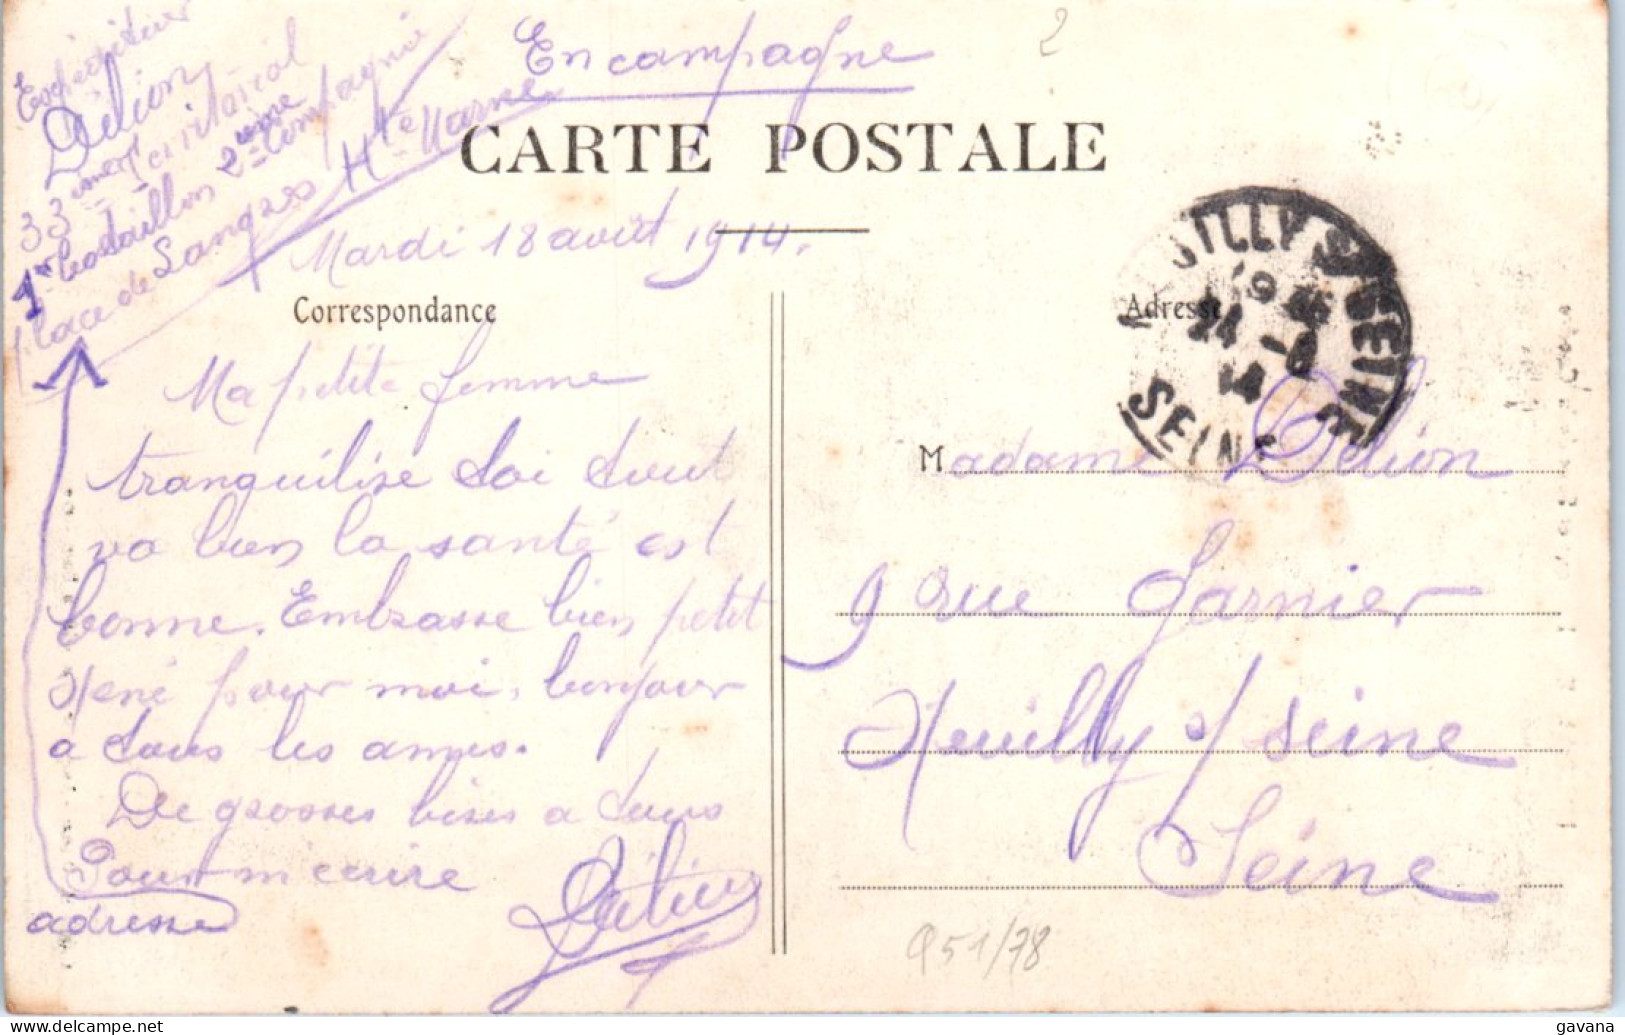 En campagne
2
Délion
33ième territorial
1er bataillon 2ème Compagnie
Place de Langres Hte Marne
CARTE POSTALE
Mardi 18 août 1914.
Correspondance
Ma petite femme
tranquilise toi tout
va bien la santé est
bonne. Embrasse bien petit
René pour moi, bonjour
a tous les amis.
De grosses bises a tous
Pour m'écrire
adresse
Délion
Adresse
NEUILLY S/ SEINE
19 45
24 -8
14
SEINE
Madame Délion
9 rue Garnier
Neuilly s/ seine
Seine
951/78
delcampe.net
gavana